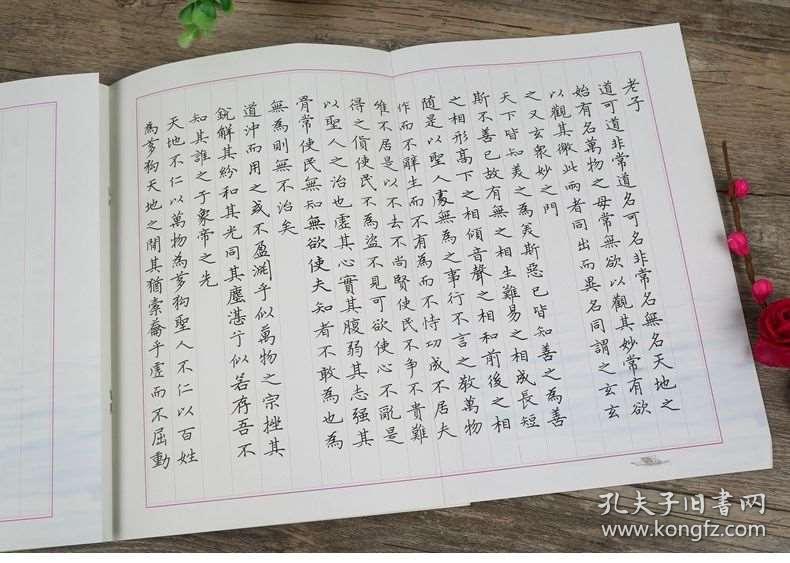 老子
道可道非常道名可名非常名無名天地之
始有名萬物之母常無欲以觀其妙常有欲
以觀其徼此兩者同出而異名同謂之玄玄
之又玄衆妙之門
天下皆知美之為美斯惡已皆知善之為善
斯不善已故有無之相生難易之相成長短
之相形高下之相傾音聲之相和前後之相
随是以聖人處無為之事行不言之教萬物
作而不辭生而不有為而不恃功成不居夫
唯不居是以不去不尚賢使民不争不貴難
得之貨使民不為盜不見可欲使心不亂是
以聖人之治也虚其心實其腹弱其志强其
骨常使民無知無欲使夫知者不敢為也為
無為則無不治矣
道沖而用之或不盈淵乎似萬物之宗挫其
銳解其紛和其光同其塵湛兮似若存吾不
知其誰之子象帝之先
天地不仁以萬物為芻狗聖人不仁以百姓
為芻狗天地之間其猶橐籥乎虚而不屈動
孔夫子旧书网
www.kongfz.com